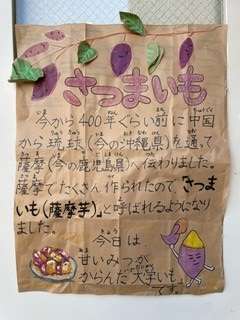 さつまいも
今から400年ぐらい前に中国
から琉球(今の沖縄県)を通って
薩摩(今の鹿児島県)へ伝わりました。
薩摩でたくさん作られたので「さつま
いも(薩摩芋)」と呼ばれるようになり
ました。
今日は
甘いみつが
からんだ大学いも
です。